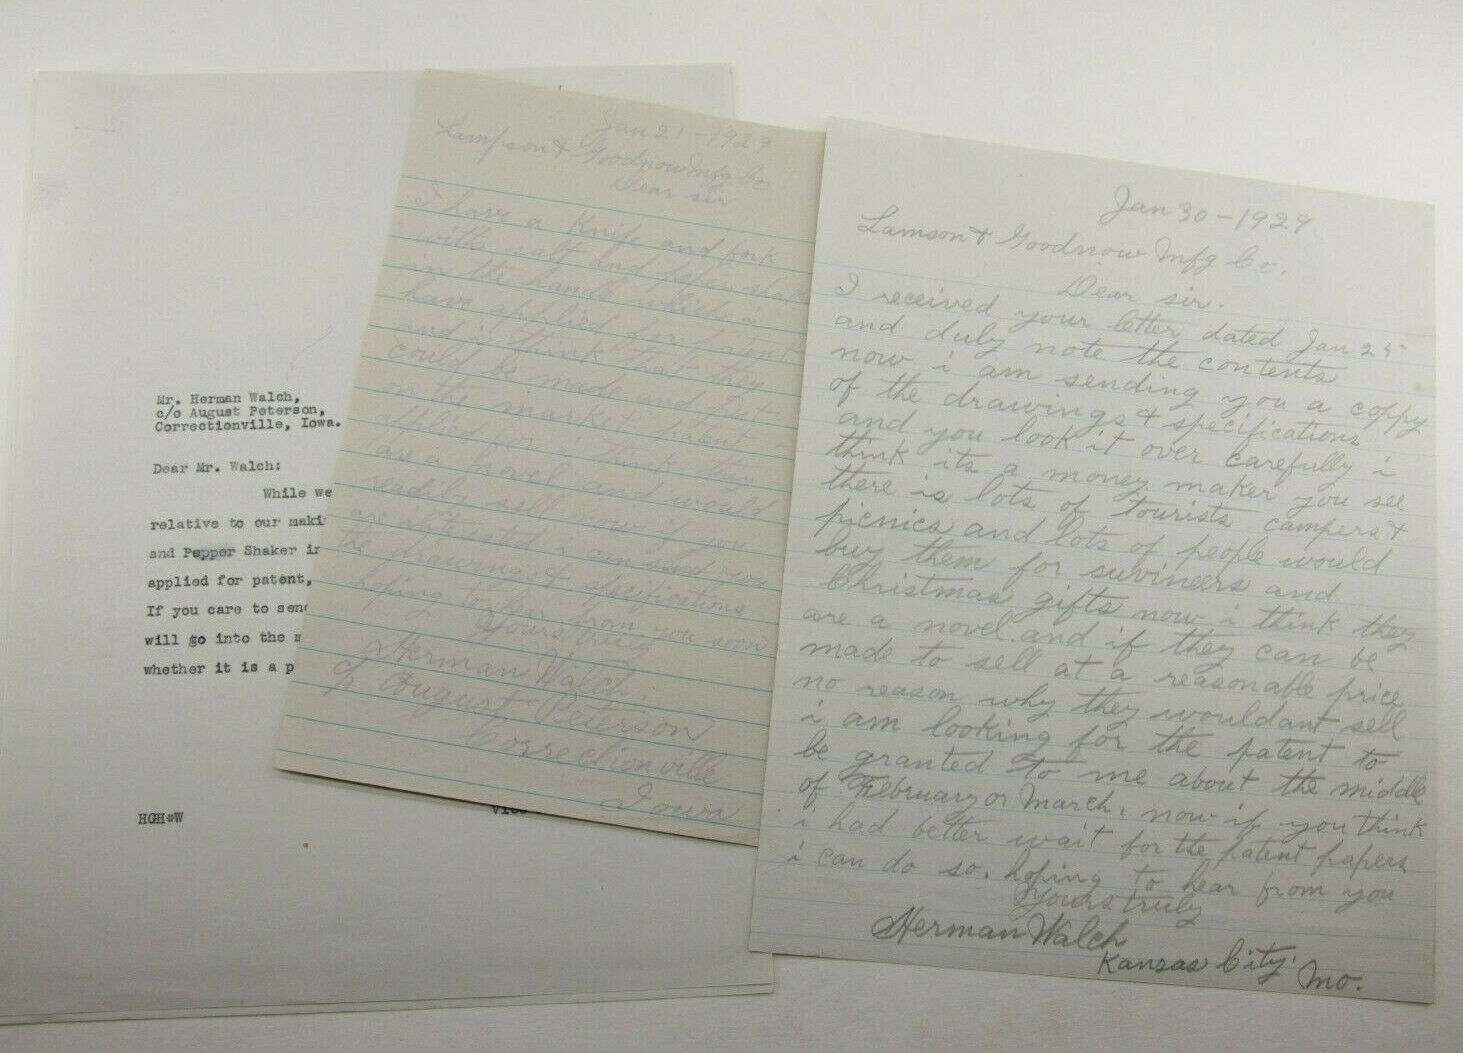 Mr. Herman Walch,
c/o August Peterson,
Correctionville, Iowa.
Dear Mr. Walch:
While we
relative to our maki
and Pepper Shaker in
applied for patent,
If you care to send
will go into the m
whether it is a p
HGH*W
Vice
Jan 21-1929
Lampson & Goodnow Mfg Co.
Dear sir
I have a Knife and fork
with salt and peper shak
in the handle which i
have applied for patent
and i think that they
could be made and put
on the mark patent
applied for i think they
are a novel and would
readily sell now if you
are intersted i can send you
the drawings & specifications
hoping to hear from you soon
Yours truly
Herman Walch.
c/o August Peterson
Correctionville
Iowa
Jan 30-1929
Lamson & Goodnow Mfg Co.
Dear sir.
I received your letter dated Jan 25
and duly note the contents
now i am sending you a coppy
of the drawings & specifications
and you look it over carefully i
think its a money maker you see
there is lots of tourists campers &
picnics and lots of people would
buy them for suvineers and
Christmas gifts now i think they
are a novel and if they can be
made to sell at a reasonable price
no reason why they wouldant sell
i am looking for the patent to
be granted to me about the middle
of February or March. now if you think
i had better wait for the patent papers
i can do so. hoping to hear from you
Yours truly
Herman Walch
Kansas City. Mo.